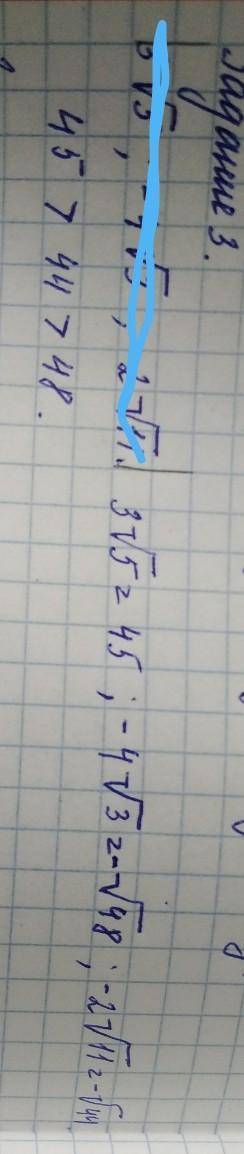 Задание 3.
3√5 = 45 ; -4√3 = -√48 ; -2√11 = -√44
45 > 44 > 48.